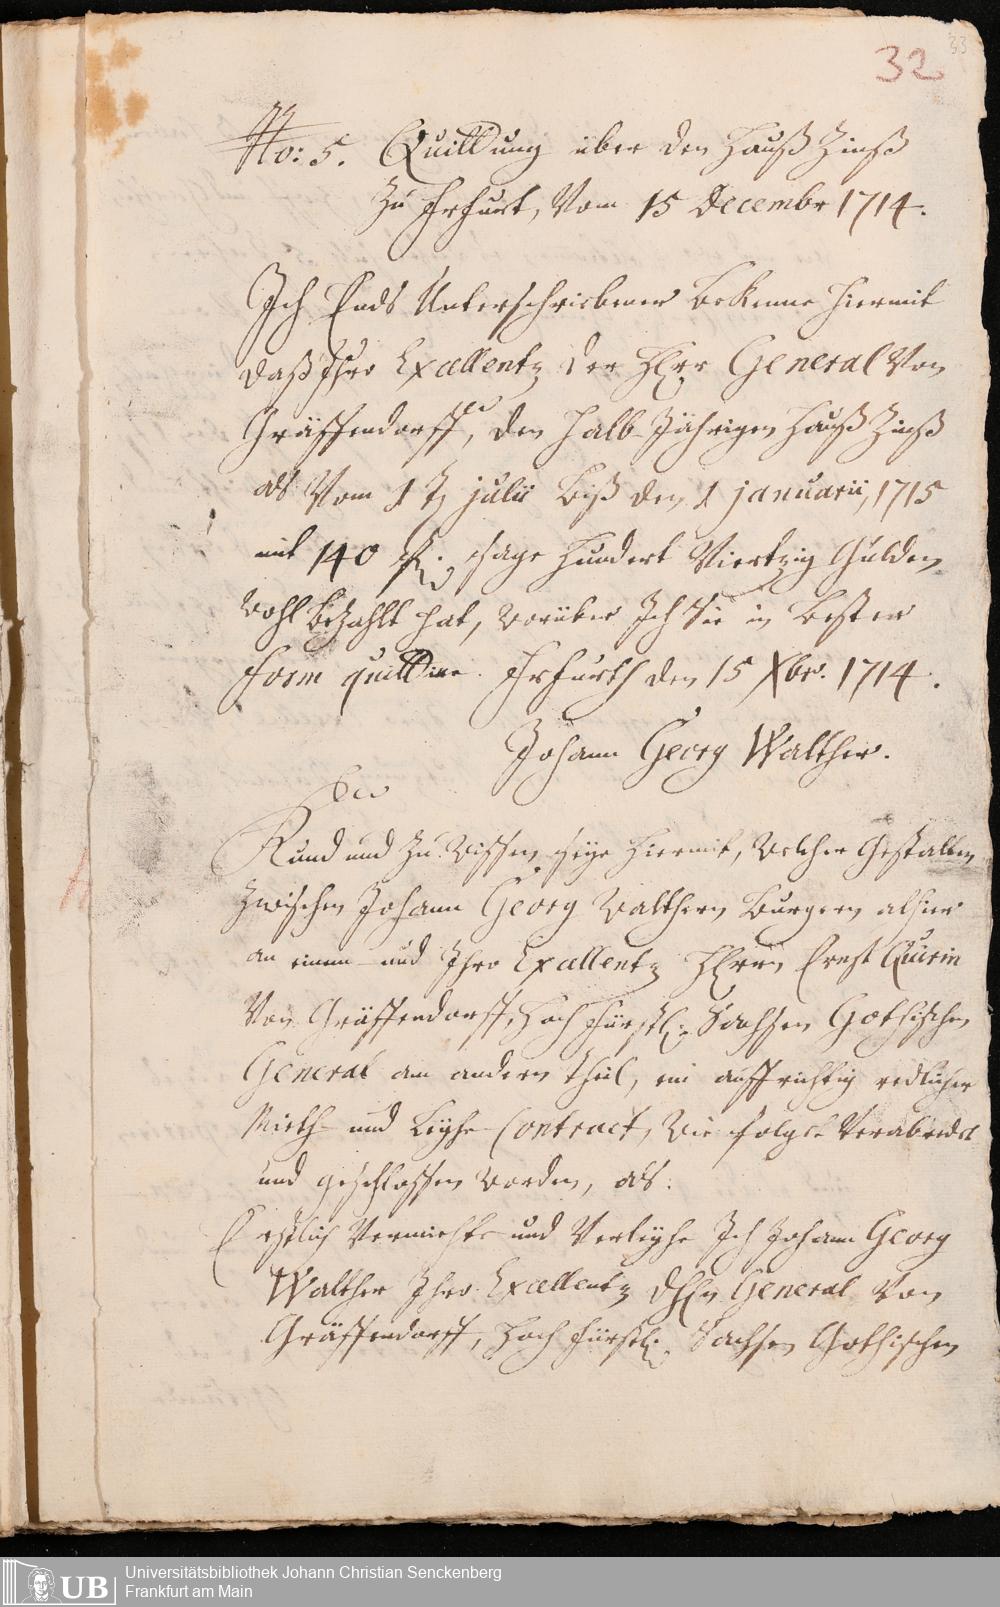 32
33
No: 5. Quittung über den Hauß Zinß
Zu Erfurt, Vom 15 Decembr 1714.
Ich Ends Unterschriebener bekenne hiermit
daß Ihro Excellentz der Herr General Von
Gräffendorff, den halb-Jährigen Hauß Zinß
als Vom 1 julii biß den 1 januarii, 1715
mit 140 f. sage hundert Viertzig Gulden
wohl bezahlt hat, worüber Ich Sie in bester
form quittire. Erfurth den 15 Xbr. 1714.
Johann Georg Walther.
Kund und Zu wissen seye hiermit, welcher gestalten
Zwischen Johann Georg Walthern Burgern alhier
an einem- und Ihro Excellentz Herrn Ernst Quirin
Von Gräffendorff, Hoch fürstl: Sachsen Gothischen
General am andern theil, ein auffrichtig redlicher
Mieth- und Leyhe-Contract, wie folget Verabredet
und geschlossen worden, als:
Erstlich Vermiethe und Verleyhe Ich Johann Georg
Walther Ihro Excellentz General Von
Gräffendorff, Hoch fürstl: Sachsen Gothischen
UB
Universitätsbibliothek Johann Christian Senckenberg
Frankfurt am Main